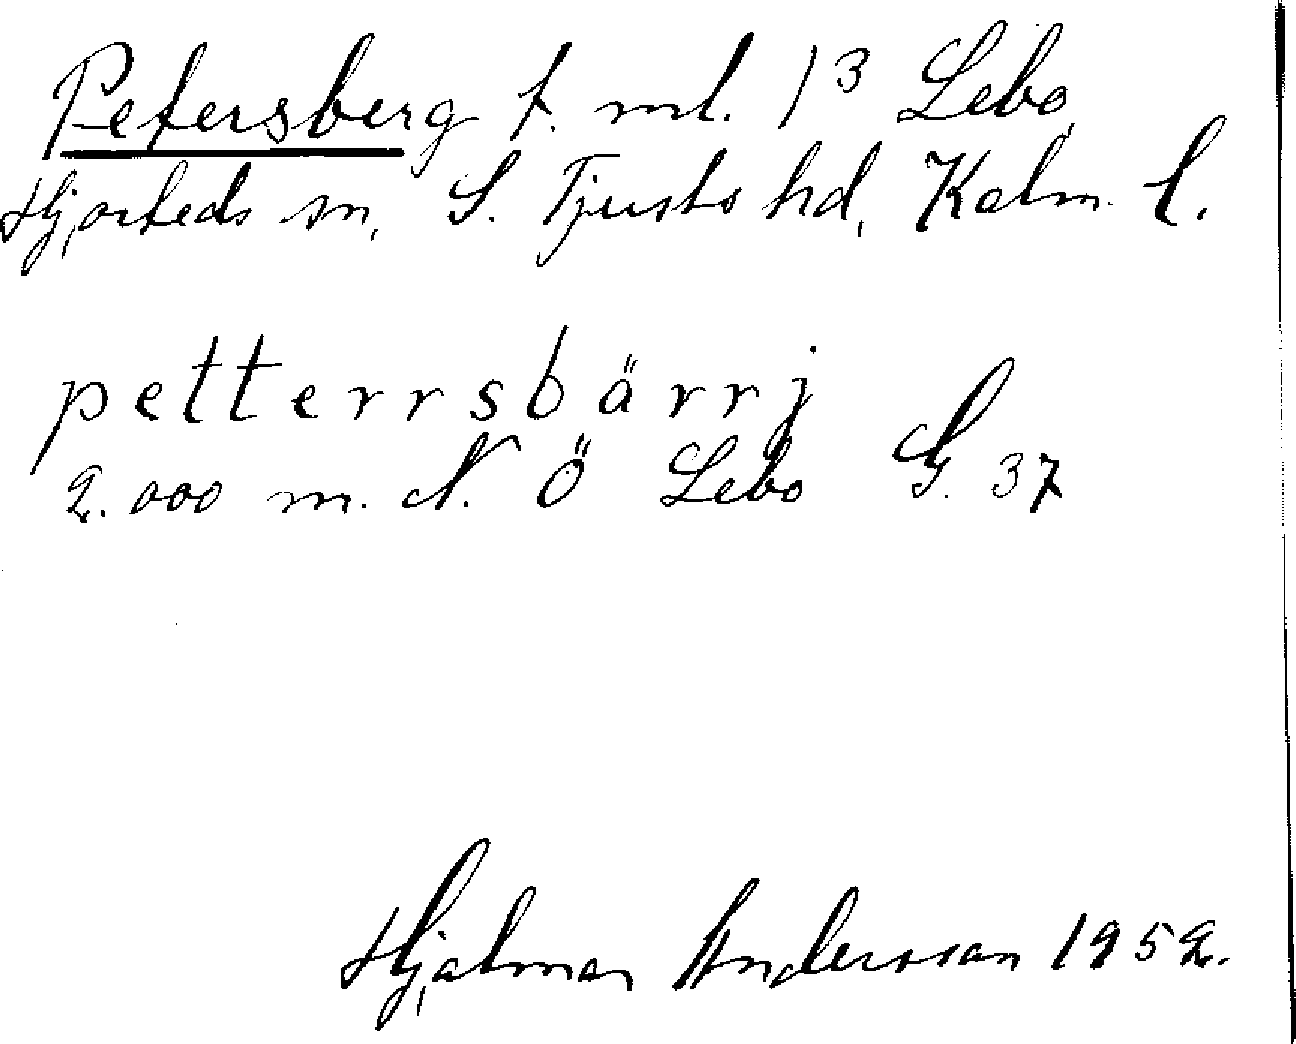 Petersberg t. ml. 1³ Lebo
Hjorteds sn, S. Tjusts hd, Kalm. l.
petterrsbärrj
2.000 m. N. Ö Lebo G. 37
Hjalmar Andersson 1952.